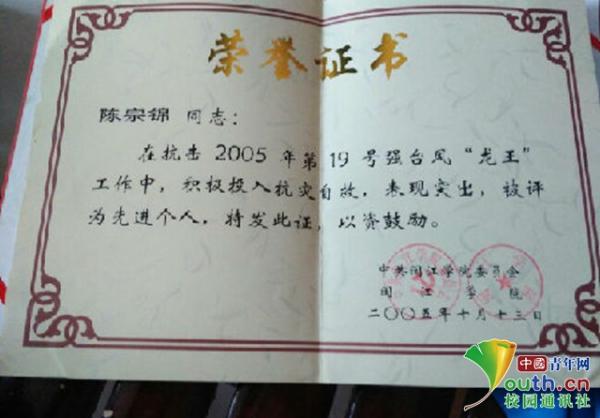 荣誉证书
陈宗锦 同志：
在抗击 2005 年第 19 号强台风“龙王”
工作中，积极投入抗灾自救，表现突出，被评
为先进个人，特发此证，以资鼓励。
中共闽江学院委员会
闽江学院
二〇〇五年十月十三日
中國青年网
Youth.cn
校园通讯社